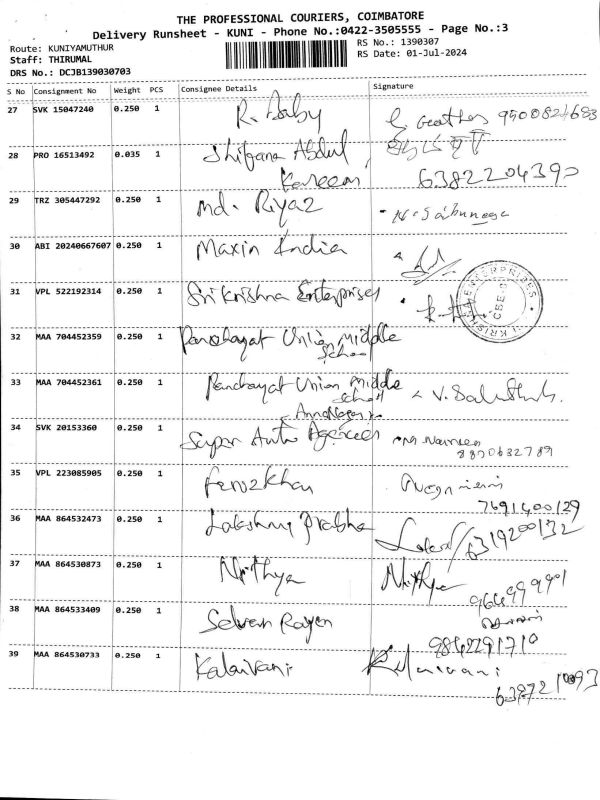 THE PROFESSIONAL COURIERS, COIMBATORE
Delivery Runsheet - KUNI - Phone No.:0422-3505555 - Page No.:3
Route: KUNIYAMUTHUR
RS No.: 1390307
Staff: THIRUMAL
RS Date: 01-Jul-2024
DRS No.: DCJB139030703
S No Consignment No Weight PCS Consignee Details Signature
27 SVK 15047240 0.250 1 R. Baby
28 PRO 16513492 0.035 1 Abdul
Kareem 6382204390
29 TRZ 305447292 0.250 1 Md. Riyaz
30 ABI 20240667607 0.250 1 Maxin India
31 VPL 522192314 0.250 1 Sri Krishna Enterprises
32 MAA 704452359 0.250 1 Panchayat Union Middle
School
33 MAA 704452361 0.250 1 Panchayat Union Middle
School
34 SVK 20153360 0.250 1 Super Auto Agencies
35 VPL 223085905 0.250 1 Ferozkhan
7691400129
36 MAA 864532473 0.250 1 Lakshmi Prabha 6319200132
37 MAA 864530873 0.250 1 Nithya Nithya
38 MAA 864533409 0.250 1 Selvan Rayen
9842291710
39 MAA 864530733 0.250 1 Kalaivani